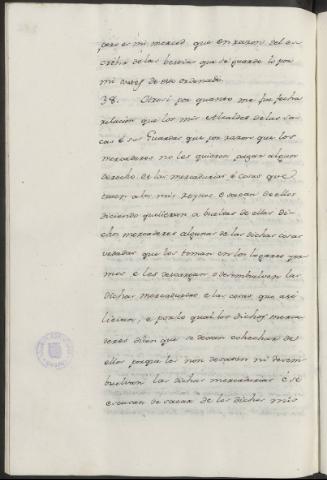 pero es mi merced, que en razon del es
crebir de las bestias que se guarde lo por
mi antes de esto ordenado.
38. Otrosi por quanto me fue fecha
relacion que los mis Alcaldes de las sa
cas é sus Guardas que por razon que los
mercaderes no les quieren pagar algun
derecho de las mercadurias é cosas que
traen a los mis Reynos é sacan de ellos
diciendo que llevan a bueltas de ellas di
chos mercaderes algunas de las dichas cosas
vedadas que los toman en los logares yer
mos e les descargan é desembuelven las
dichas mercadurias e las cosas que asi
llevan, e por lo qual los dichos merca
deres dicen que se dexan cohechar de
ellos porque les non descaten ni desem
buelvan las dichas mercadurias é se
escusan de sacar de los dichos mis